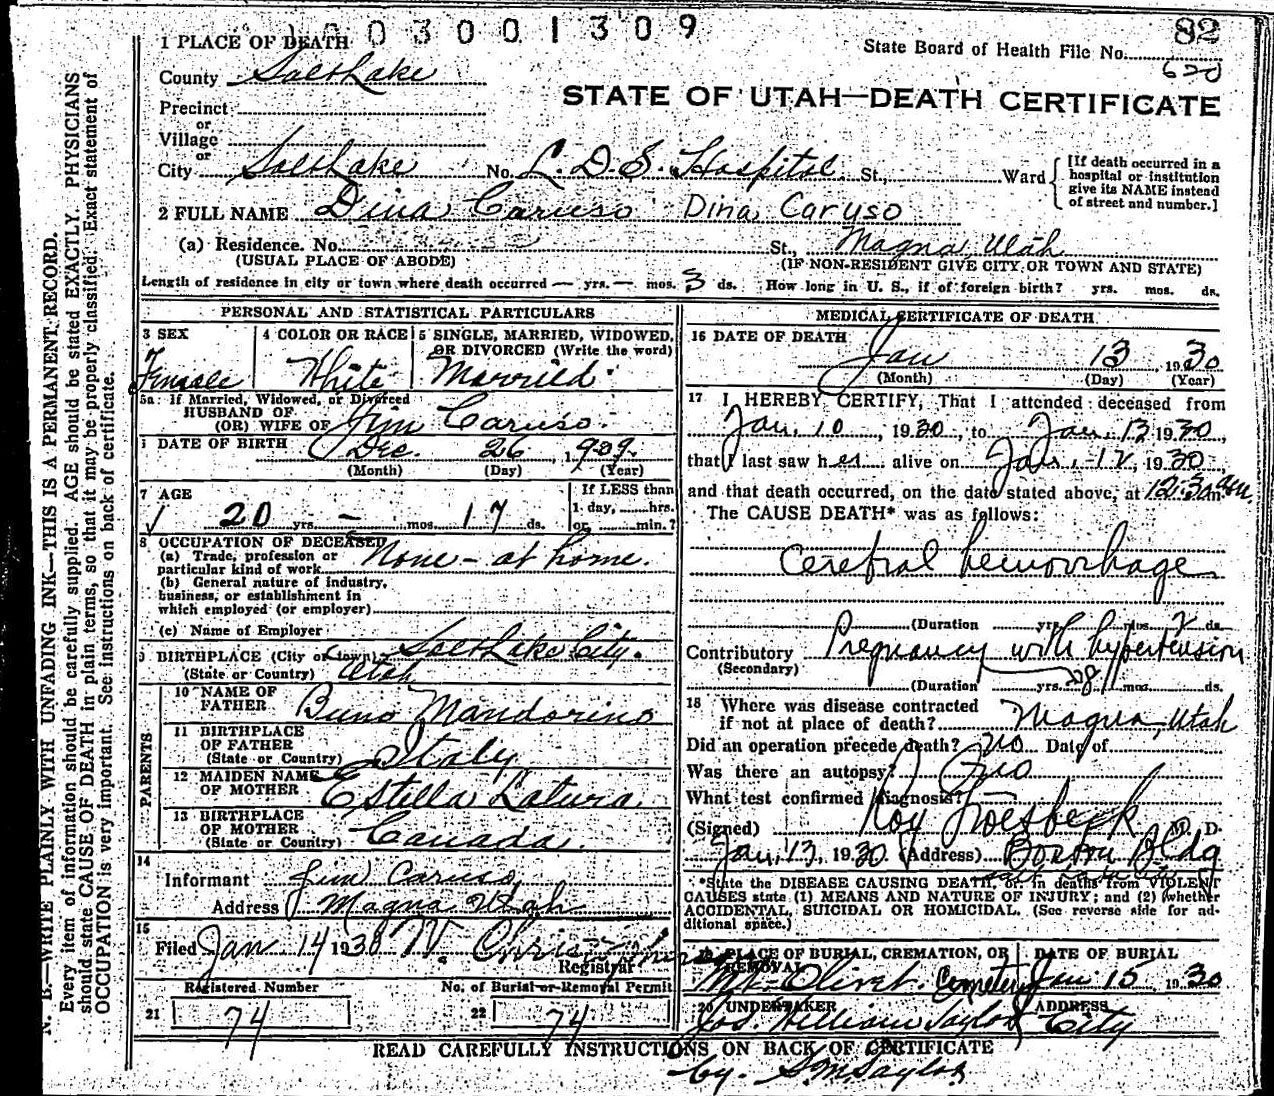 1003001309
82
State Board of Health File No.
620
1 PLACE OF DEATH
County Salt Lake
STATE OF UTAH—DEATH CERTIFICATE
Precinct
or
Village
or
City Salt Lake No. L. D. S. Hospital St., Ward
[If death occurred in a hospital or institution give its NAME instead of street and number.]
2 FULL NAME Dina Caruso Dina Caruso
(a) Residence. No. St., Magna, Utah
(USUAL PLACE OF ABODE) (IF NON-RESIDENT GIVE CITY OR TOWN AND STATE)
Length of residence in city or town where death occurred — yrs. — mos. 3 ds. How long in U. S., if of foreign birth? yrs. mos. ds.
PERSONAL AND STATISTICAL PARTICULARS
3 SEX 4 COLOR OR RACE 5 SINGLE, MARRIED, WIDOWED, OR DIVORCED (Write the word)
Female White Married
5a If Married, Widowed, or Divorced
HUSBAND OF
(OR) WIFE OF Jim Caruso.
DATE OF BIRTH Dec. 26 1909.
(Month) (Day) (Year)
7 AGE If LESS than
1 day, hrs.
20 yrs. — mos. 17 ds. or min.?
8 OCCUPATION OF DECEASED
(a) Trade, profession or
particular kind of work None - at home.
(b) General nature of industry,
business, or establishment in
which employed (or employer)
(c) Name of Employer
9 BIRTHPLACE (City or town) Salt Lake City.
(State or Country) Utah
PARENTS
10 NAME OF
FATHER Buno Mandorino
11 BIRTHPLACE
OF FATHER
(State or Country) Italy
12 MAIDEN NAME
OF MOTHER Estella Latura
13 BIRTHPLACE
OF MOTHER
(State or Country) Canada.
14
Informant Jim Caruso
Address Magna Utah
15
Filed Jan 14 1930
Registrar
Registered Number No. of Burial or Removal Permit
21 74 22 74
MEDICAL CERTIFICATE OF DEATH
16 DATE OF DEATH
Jan 13, 1930
(Month) (Day) (Year)
17 I HEREBY CERTIFY, That I attended deceased from
Jan. 10, 1930, to Jan. 13 1930,
that I last saw her alive on Jan. 12, 1930,
and that death occurred, on the date stated above, at 12:30 am.
The CAUSE DEATH* was as follows:
Cerebral hemorrhage
(Duration yrs. mos. 2 ds.
Contributory Pregnancy with hypertension
(Secondary)
(Duration yrs. mos. ds.
18 Where was disease contracted
if not at place of death? Magna, Utah
Did an operation precede death? no Date of
Was there an autopsy? no
What test confirmed diagnosis?
(Signed) Roy Groesbeck M. D.
Jan, 13, 1930 (Address) Boston Bldg
*State the DISEASE CAUSING DEATH, or, in deaths from VIOLENT
CAUSES state (1) MEANS AND NATURE OF INJURY; and (2) whether
ACCIDENTAL, SUICIDAL OR HOMICIDAL. (See reverse side for ad-
ditional space.)
19 PLACE OF BURIAL, CREMATION, OR REMOVAL DATE OF BURIAL
Mt. Olivet Cemetery Jan 15, 1930
20 UNDERTAKER ADDRESS
Jos. William Taylor City
by. S.M. Taylor
READ CAREFULLY INSTRUCTIONS ON BACK OF CERTIFICATE
N. B.—WRITE PLAINLY WITH UNFADING INK—THIS IS A PERMANENT RECORD.
Every item of information should be carefully supplied. AGE should be stated EXACTLY. PHYSICIANS
should state CAUSE OF DEATH in plain terms, so that it may be properly classified. Exact statement of
OCCUPATION is very important. See instructions on back of certificate.